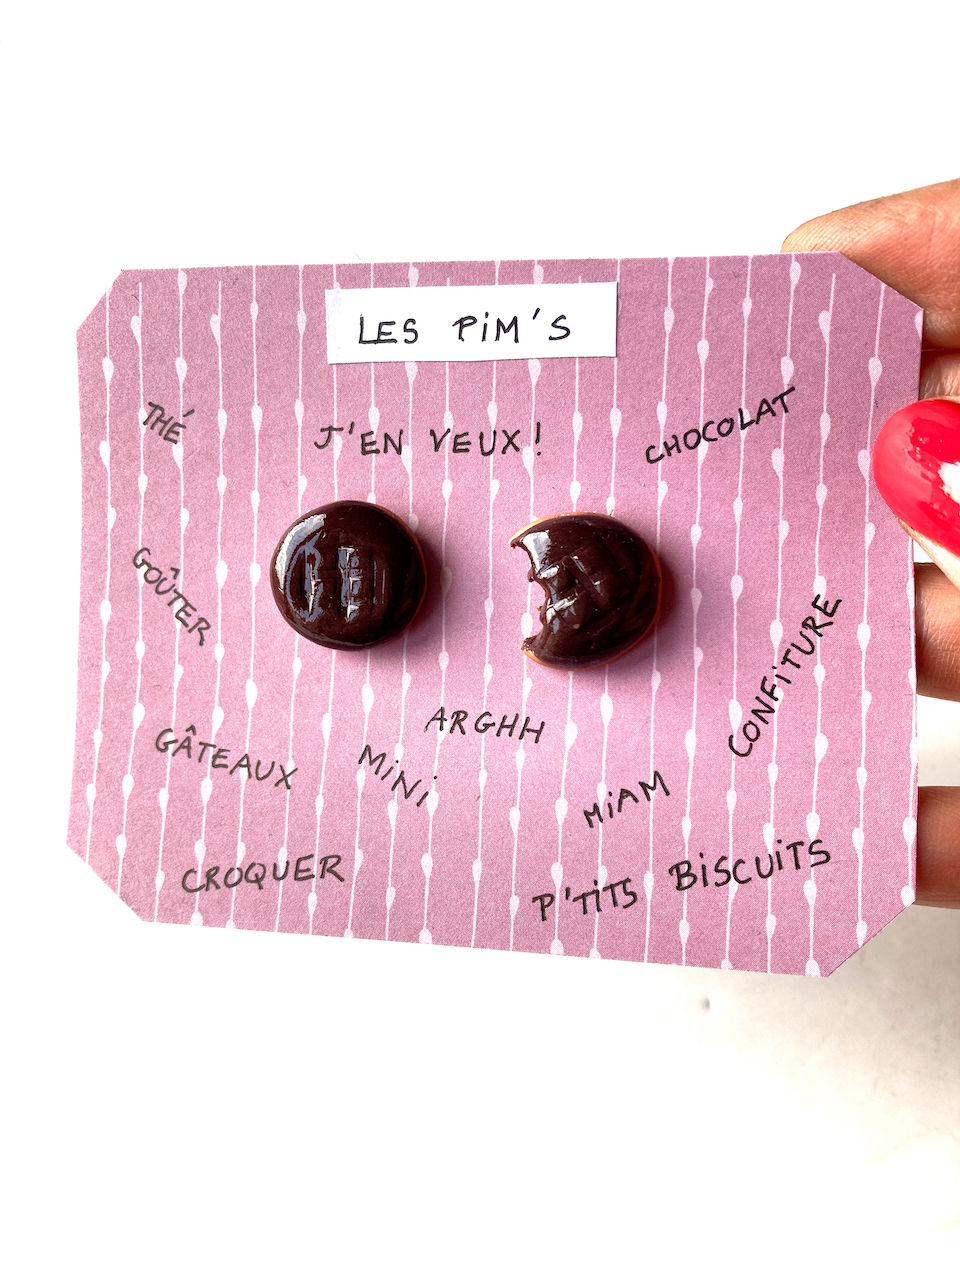 LES PiM'S
THÉ
J'EN VEUX!
CHOCOLAT
GOÛTER
CONFiTURE
ARGHH
GÂTEAUX
MiNi
MiAM
CROQUER
P'TiTS BiSCUiTS